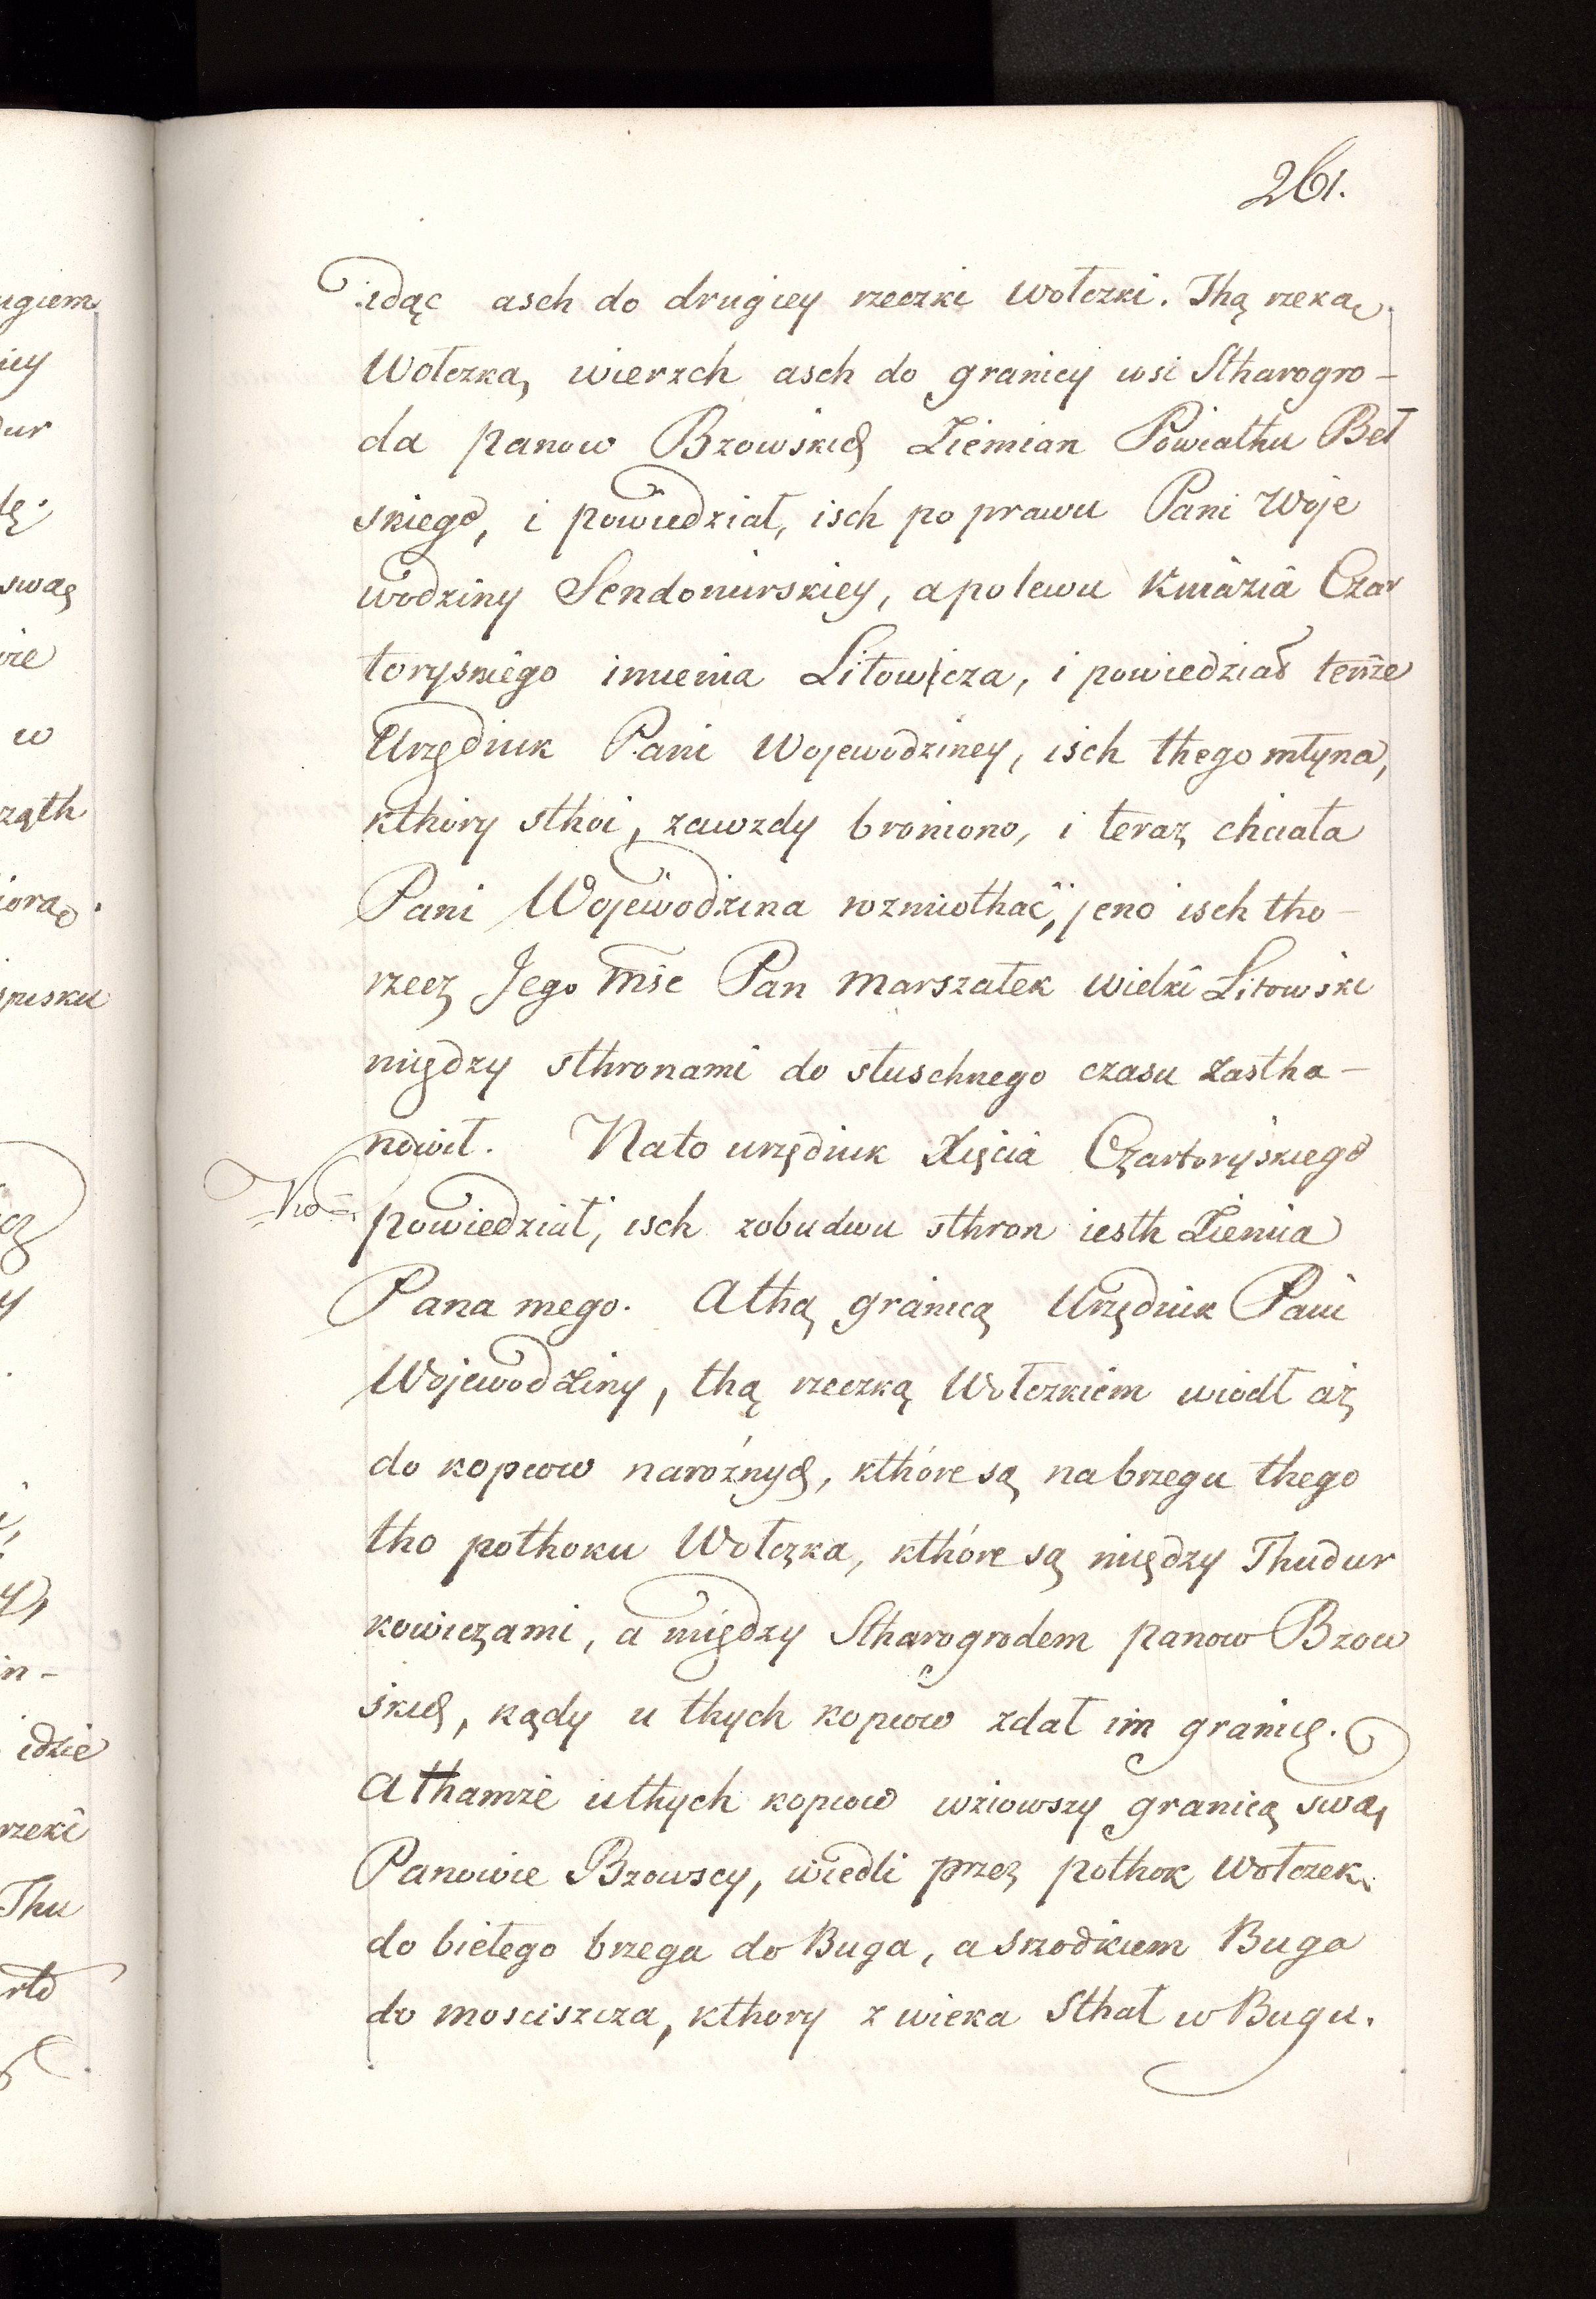 261.
idąc asch do drugiey rzeczki Wołczki. Thą rzeką
Wołczką, wierzch asch do granicy wsi Stharogro-
da panow Bzowskich Ziemian Powiathu Beł
skiego, i powiedział, isch po prawu Pani Woje
wodziny Sendomirskiey, a po lewu Kniazia Czar
toryskiego imienia Litowicza, i powiedział tenże
Urzędnik Pani Wojewodziney, isch thego młyna,
kthory sthoi, zawzdy broniono, i teraz chciała
Pani Wojewodzina rozmiothać, jeno isch tho-
rzecz Jego Mśc Pan Marszałek wielki Litowski
między sthronami do słuschnego czasu zastha-
nowił. Na to urzędnik Xięcia Czartoryskiego
powiedział, isch z obudwu sthron iesth Ziemia
Pana mego. A thą granicą Urzędnik Pani
Wojewodziny, thą rzeczką Wołczkiem wiodł aż
do kopcow narożnych, kthóre są na brzegu thego
tho pothoku Wołczka, kthóre są między Thudur
kowiczami, a między Stharogrodem panow Bzow
skich, kędy u thych kopcow zdał im granicę.
A thamże u thych kopcow wziowszy granicą swą
Panowie Bzowscy, wiedli przez pothok Wołczek
do biełego brzega do Buga, a srzodkiem Buga
do mosciszcza, kthory z wieka sthał w Bugu.